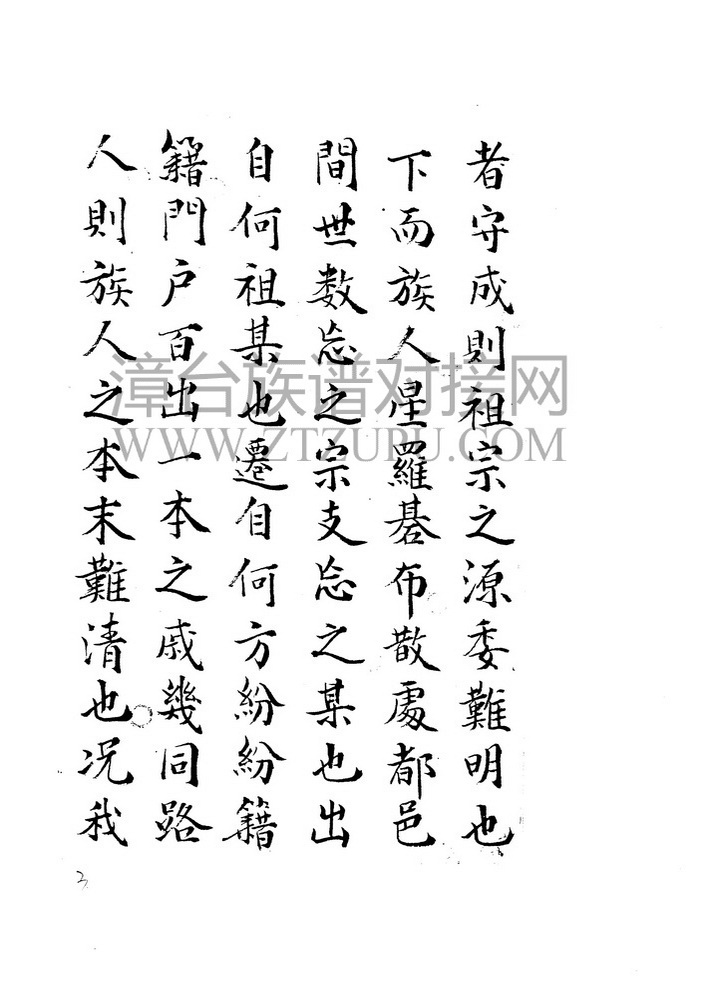 者守成則祖宗之源委難明也
下而族人星羅碁布散處都邑
間世数忘之宗支忘之某也出
自何祖某也遷自何方紛紛籍
籍門户百出一本之戚幾同路
人則族人之本末難清也况我
漳台族谱对接网
WWW.ZTZUPU.COM
3